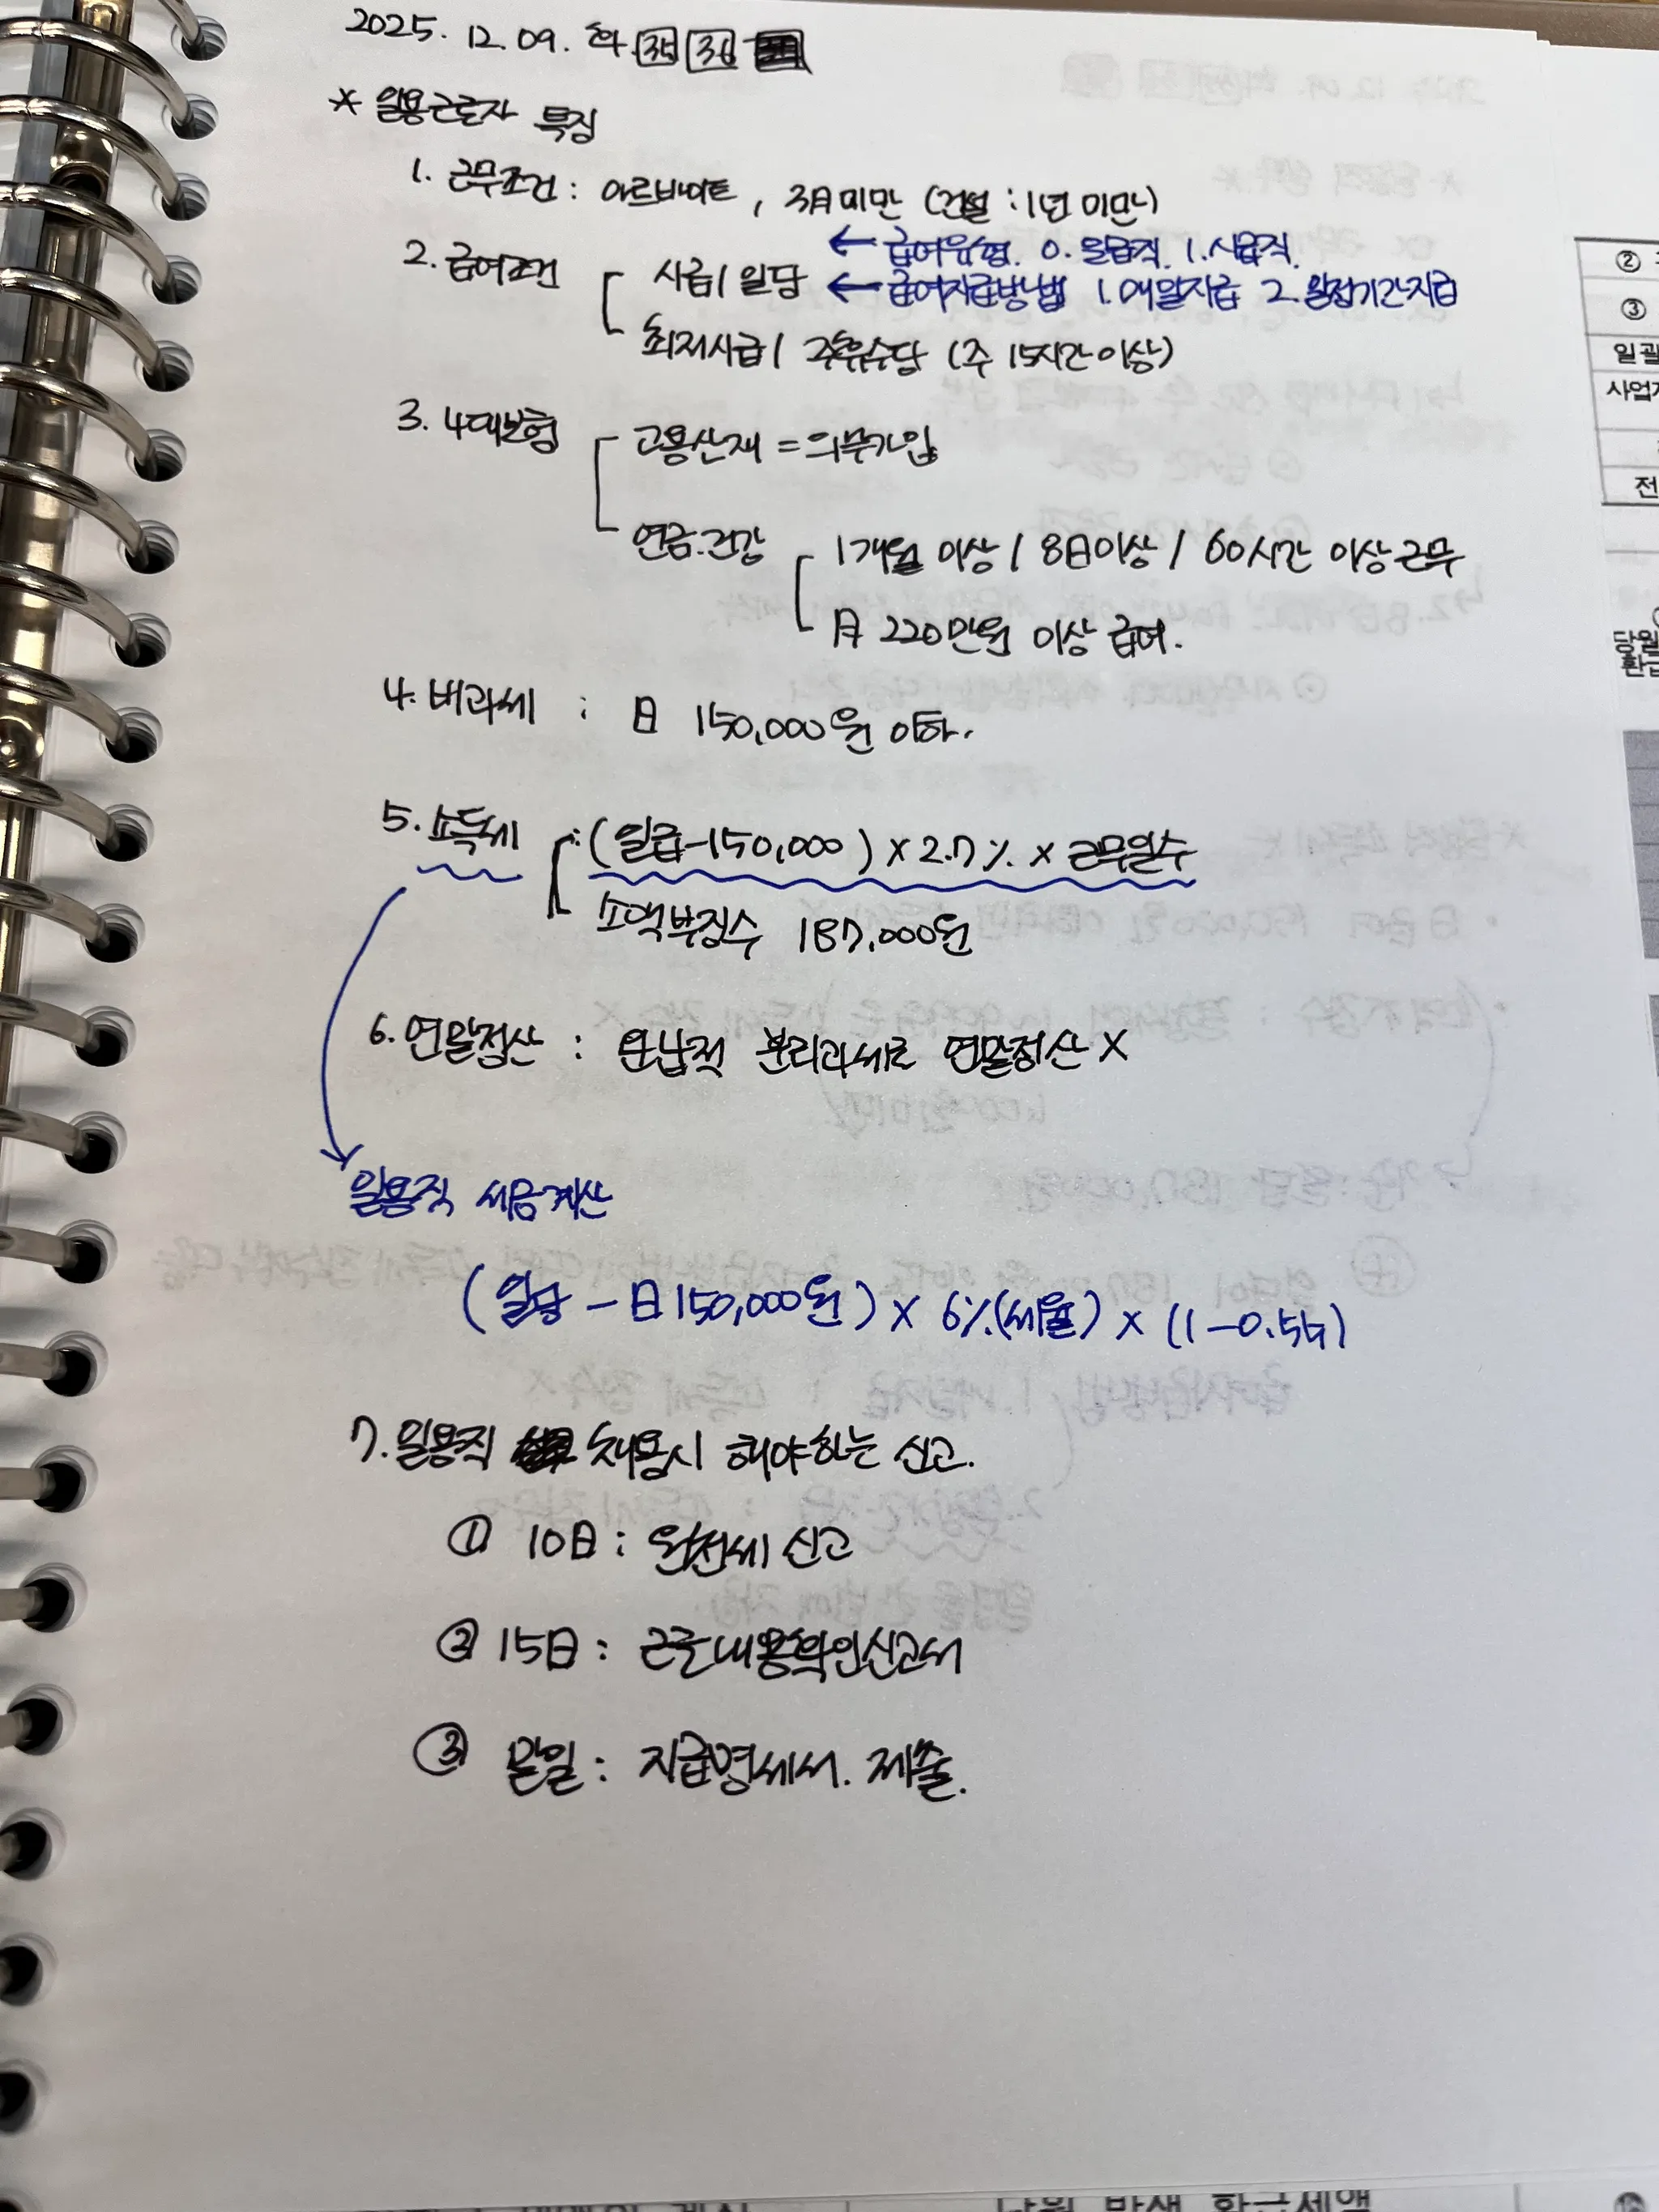 2025. 12. 09. 화 35 36
* 일용근로자 특징
1. 근무조건 : 아르바이트, 3月미만 (건설 : 1년 미만)
← 급여유형. 0. 일급직. 1. 시급직.
2. 급여조건 시급/ 일당 ← 급여지급방법 1. 매일지급 2. 일정기간지급
최저시급/ 주휴수당 (주 15시간이상)
3. 4대보험 고용산재 = 의무가입
연금.건강 1개월 이상 / 8日이상 / 60시간 이상근무
月 220만원 이상 급여.
4. 비과세 : 日 150,000원 이하.
5. 소득세 : (일급-150,000) × 2.7% × 근무일수
소액부징수 187,000원
6. 연말정산 : 완납적 분리과세로 연말정산 X
일용직 세금계산
(일당 - 日150,000원) × 6%(세율) × (1-0.55)
7. 일용직 채용시 해야하는 신고.
① 10日 : 원천세 신고
② 15日 : 근로내용확인신고서
③ 말일 : 지급명세서. 제출.
②
③
일괄
전
당월
환급
당월 발생 환급세액